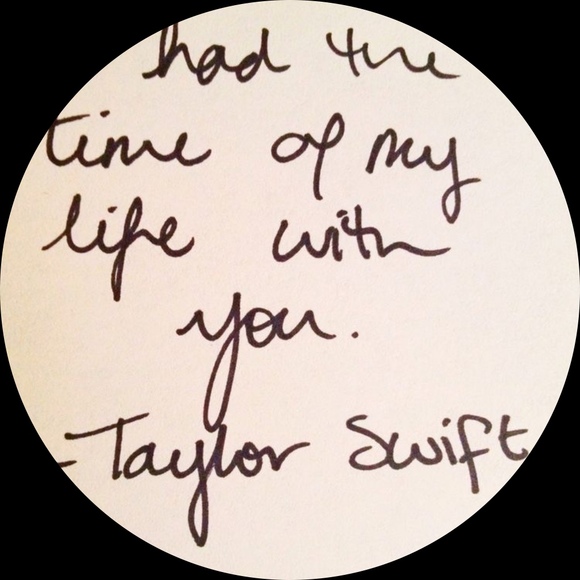 had the
time of my
life with
you.
-Taylor Swift